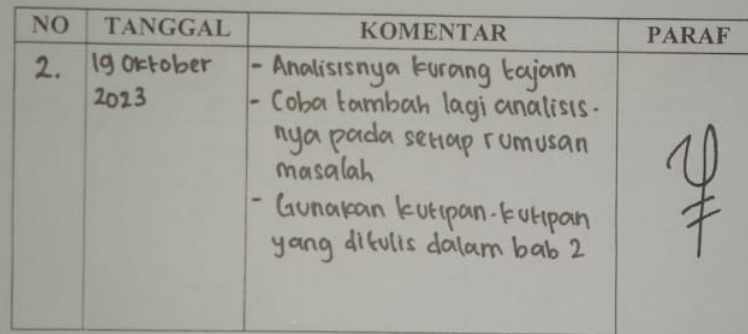 NO TANGGAL KOMENTAR PARAF
2. 19 Oktober - Analisisnya kurang tajam
2023 - Coba tambah lagi analisis-
nya pada setiap rumusan
masalah
- Gunakan kutipan-kutipan
yang ditulis dalam bab 2